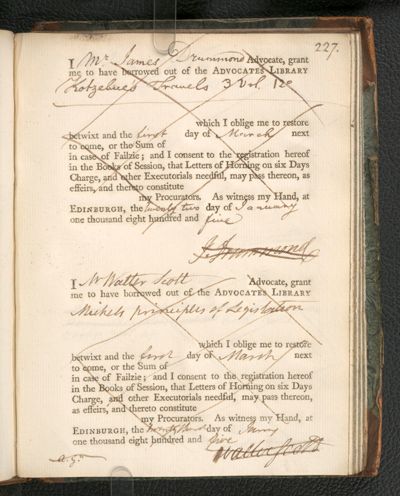 227.
I Mr. James Drummond Advocate, grant
me to have borrowed out of the ADVOCATES LIBRARY
Kotzebues Travels 3 Vol. 12o
which I oblige me to restore
betwixt and the first day of March next
to come, or the Sum of
in case of Failzie; and I consent to the registration hereof
in the Books of Session, that Letters of Horning on six Days
Charge, and other Executorials needful, may pass thereon, as
effeirs, and thereto constitute
my Procurators. As witness my Hand, at
EDINBURGH, the twenty two day of January
one thousand eight hundred and five
J. Drummond
I Mr Walter Scott Advocate, grant
me to have borrowed out of the ADVOCATES LIBRARY
principles of Legislation
which I oblige me to restore
betwixt and the first day of March next
to come, or the Sum of
in case of Failzie; and I consent to the registration hereof
in the Books of Session, that Letters of Horning on six Days
Charge, and other Executorials needful, may pass thereon,
as effeirs, and thereto constitute
my Procurators. As witness my Hand, at
EDINBURGH, the day of Janry
one thousand eight hundred and five
Walter Scott